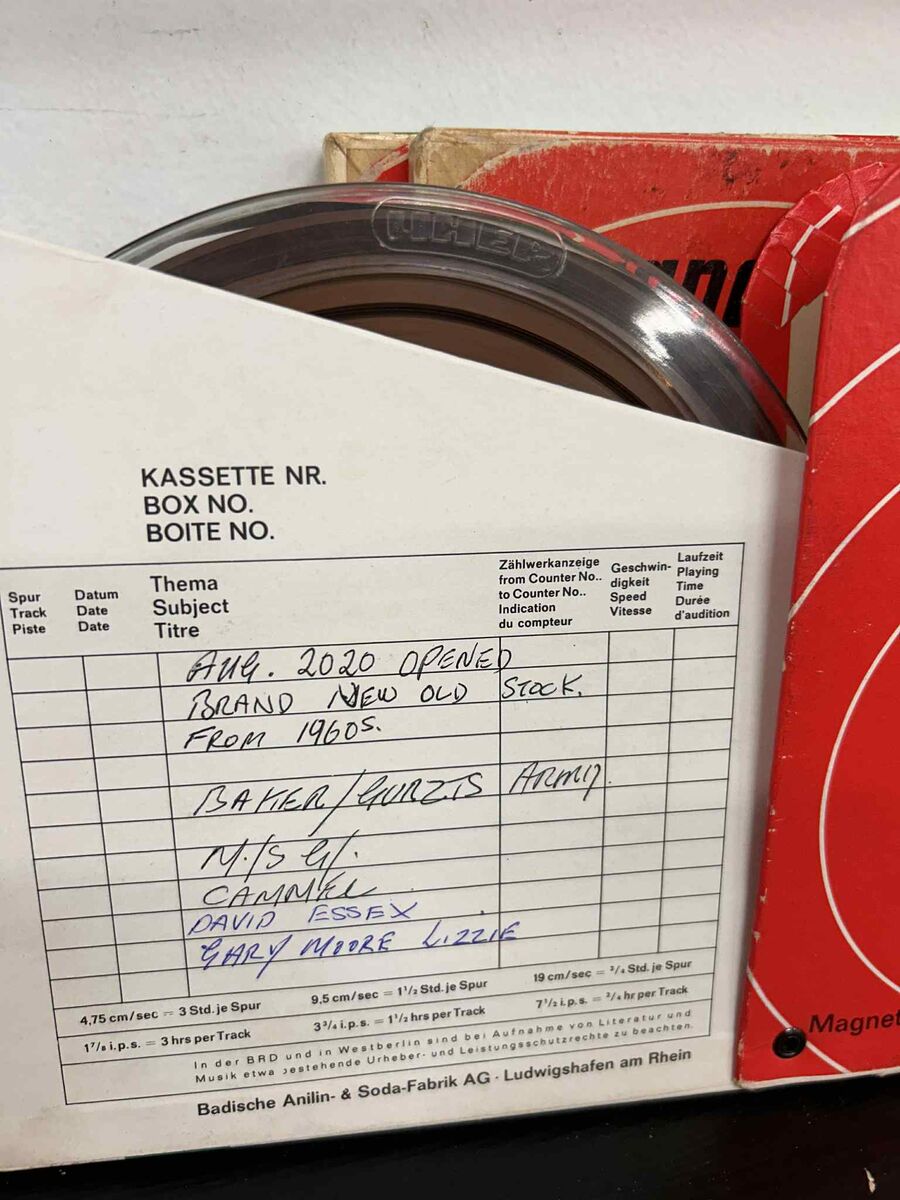 UHER
KASSETTE NR.
BOX NO.
BOITE NO.
Spur
Track
Piste
Datum
Date
Date
Thema
Subject
Titre
Zählwerkanzeige
from Counter No..
to Counter No..
Indication
du compteur
Geschwin-
digkeit
Speed
Vitesse
Laufzeit
Playing
Time
Durée
d'audition
AUG. 2020 OPENED
BRAND NEW OLD STOCK.
FROM 1960S.
BAKER/GURZIS ARMY.
M./S G/.
DAVID ESSEX
GARY MOORE LIZZIE
4,75 cm/sec = 3 Std. je Spur
9,5 cm/sec = 1 1/2 Std. je Spur
19 cm/sec = 3/4 Std. je Spur
1 7/8 i.p.s. = 3 hrs per Track
3 3/4 i.p.s. = 1 1/2 hrs per Track
7 1/2 i.p.s. = 3/4 hr per Track
In der BRD und in Westberlin sind bei Aufnahme von Literatur und
Musik etwa bestehende Urheber- und Leistungsschutzrechte zu beachten.
Badische Anilin- & Soda-Fabrik AG · Ludwigshafen am Rhein
Magnet